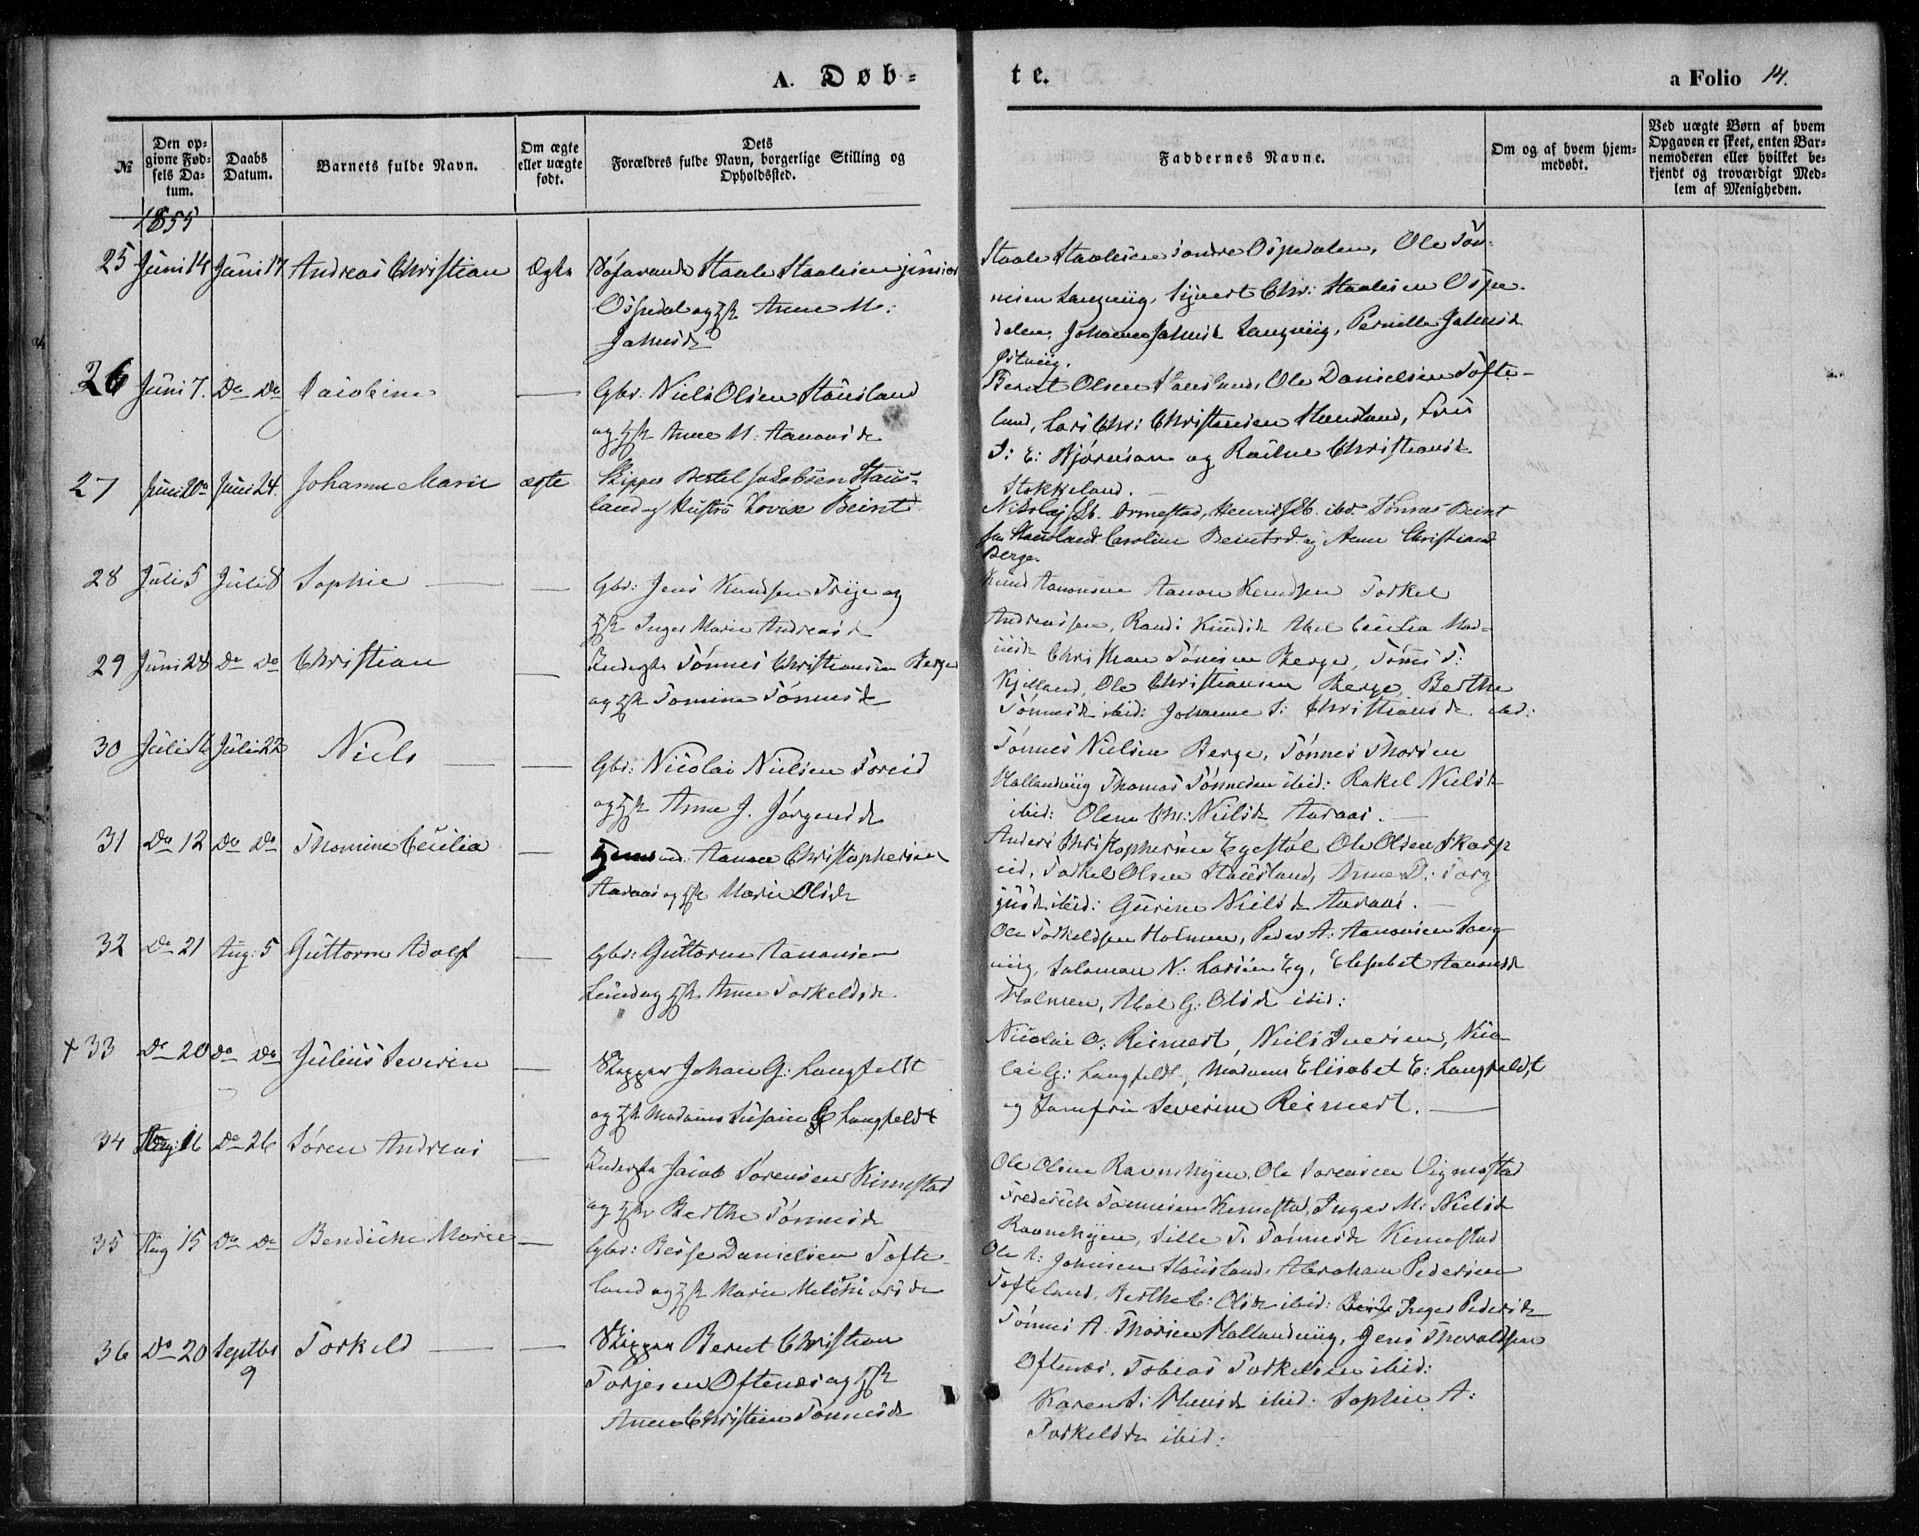 A. Døb-
te.
a Folio 14.
№
Den opgivne Fødsels Datum.
Daabs Datum.
Barnets fulde Navn.
Om ægte eller uægte født.
Dets Forældres fulde Navn, borgerlige Stilling og Opholdssted.
Faddernes Navne.
Om og af hvem hjemmedøbt.
Ved uægte Børn af hvem Opgaven er skeet, enten Barnemoderen eller hvilket bekjendt og troværdigt Medlem af Menigheden.
1855
25 Juni 14 Juni 17 Andreas Christian Ægte Søfarende Staale Staalesen junior
Ospedal og Anne M:
Staale Staalesen søndre Ospedalen, Ole Tøn-
nesen Langviig, Sigvert Chr: Staalesen Ospe-
dalen, Langviig, Pernille
26 Juni 7. Do Do Jacobine
Gbr: Niels Olsen Stausland
og Anne M. Aanonsd
Bernt Olsen Stausland, Ole Danielsen Tofte-
land, Lars Chr: Christensen Stausland,
J: E: Bjørnson og Christiansd
Stokkeland.
27 Juni 20 Juni 24. Johanne Marie ægte
Skipper Bertel Jacobsen Staus-
land og Hustro Lovise Beint
Nikolaj Ormestad, Henrik ibd Tønnes Beint
sen Stausland Caroline Beintsd og Anne Christians
Berge
28 Juli 5 Juli 8 Sophie
Gbr: Jens Knudsen Trije og
Inger Marie Andreasd
Knud Aanonsen Aanon Knudsen Torkel
Andreassen, Randi Knudsd Abel Cecilia Mad-
29 Juni 28 Do Do Christian
Inderste Tønnes Christiansen Berge
og Tomine Tønnesd
Christian Tønnesen Berge, Tønnes T:
Kjilland, Ole Christiansen Berge, Berthe
Tønnesd ibid: Johanne T: Christiansd ibid:
30 Juli 16 Juli 22 Niels
Gbr: Nicolai Nielsen Foreid
og Anne J. Jørgensd
Tønnes Nielsen Berge, Tønnes Thorsen
Hallandviig Thomas Tønnesen ibid: Rakel Nielsd
ibid: Olene Chr: Nielsd Aaraas.
31 Do 12 Do Do Thomine Cecilia
Aanon Christophersen
Aaraas og Marie Olsd
Anders Christophersen Egestøl Ole Olsen Skarp
eid, Torkel Olsen Stausland, Anne D: Torg
ibid: Gurine Nielsd Aaraas.
32 Do 21 Aug: 5 Guttorm Adolf
Gbr: Guttorm Aanonsen
Lund og Anne Torkeldsd
Ole Torkeldsen Holmen, Peder A: Aanonsen Lang
viig, Salomon N: Larsen Eg, Elisabet Aanonsd
Holmen, Abel G: Olsd ibid:
+ 33 Do 20 Do Do Julius Severin
Skipper Johan G: Langfeldt
og Madame Susanne Langfeldt
Nicolai O: Reimert, Niels Iversen, Nico-
lai G: Langfeldt, Madame Elisabet E: Langfeldt
og Jomfru Severine Reimert.
34 Aug: 16 Do 26 Søren Andreas
Inderste Jacob Sørensen Kimestad
og Berthe Tønnesd
Ole Olsen Ravnehejen, Ole Sørensen Vigmostad
Frederich Tønnesen Kimestad, Inger M: Nielsd
Ravnehejen, Sille T: Tønnesd Kimestad
35 Aug 15 Do Do Bendicte Marie
Gbr: Besse Danielsen Tofte-
land og Marie Melchiorsd
Ole A: Johnsen Stausland, Abraham Pedersen
Tofteland, Berthe C: Olsd ibid: Inger Pedersd
36 Do 20 Septbr 9 Torkeld
Skipper Bernt Christian
Torjesen Oftenes og
Anne Christine Tønnesd
Tønnes A. Thorsen Hallandviig, Jens Thoraldsen
Oftenes, Tobias Torkelsen ibid:
Karen ibid: Sophie A:
Torkeldsd ibid: